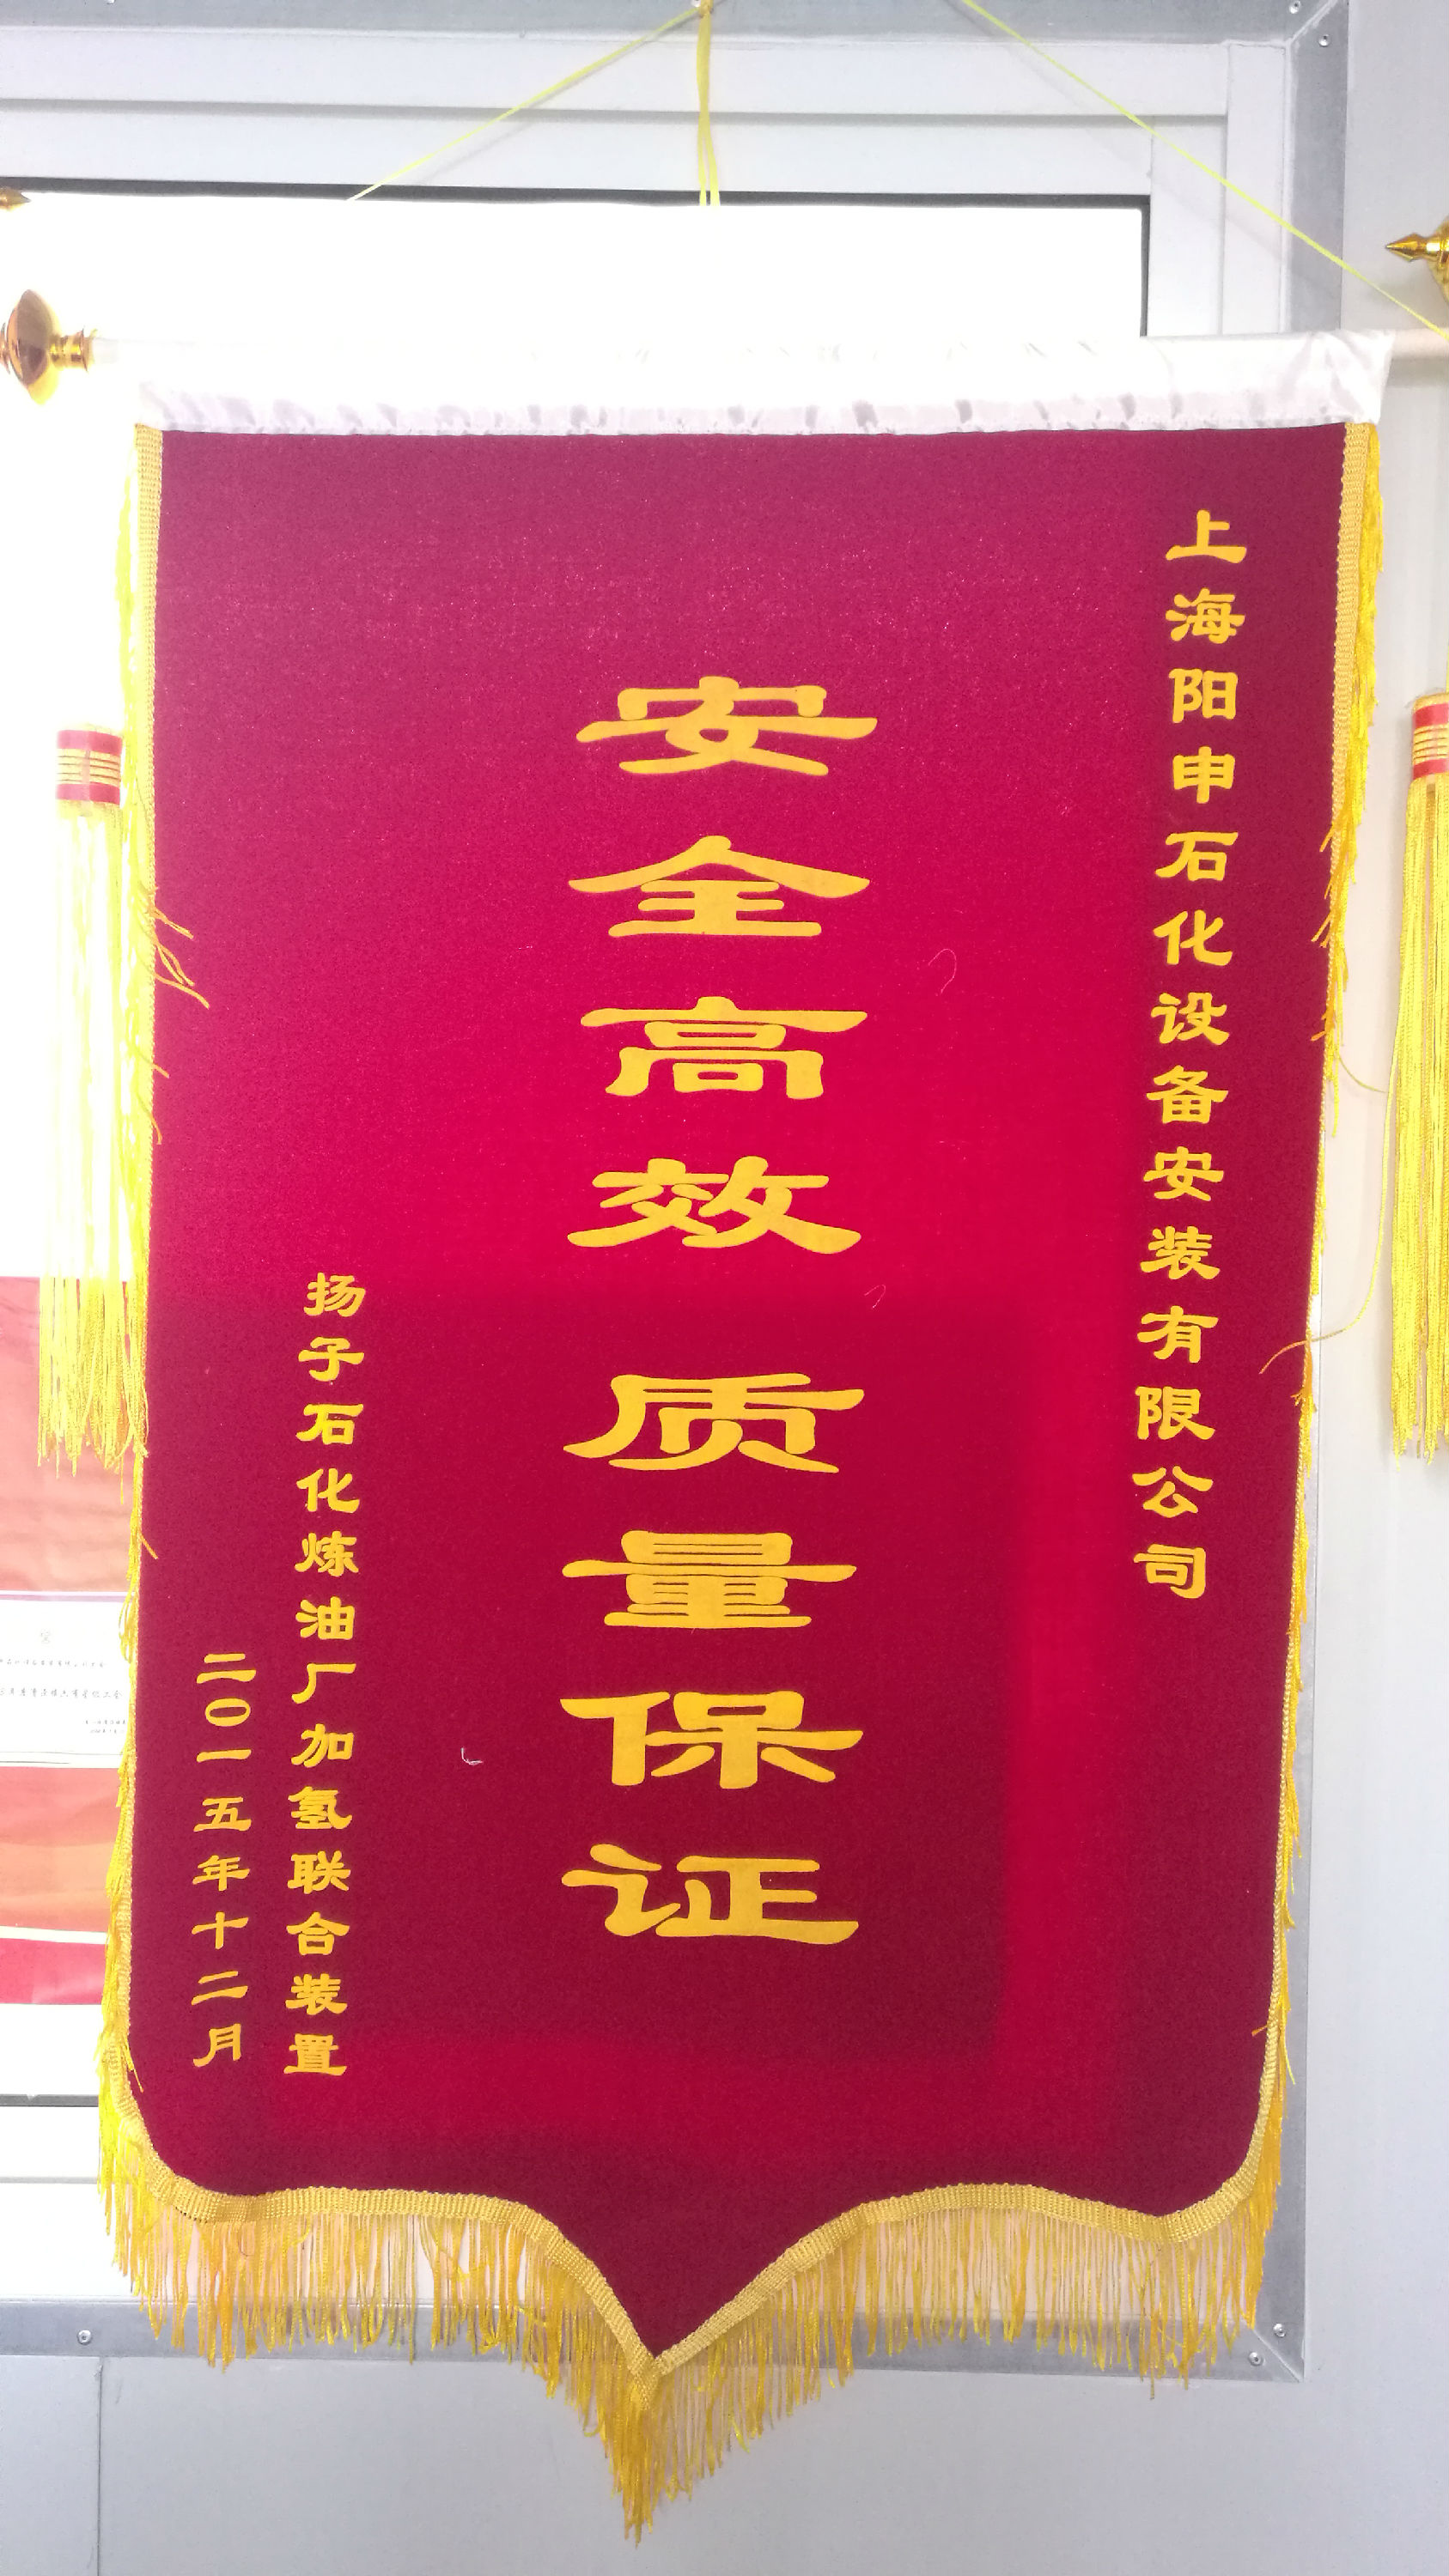 上海阳申石化设备安装有限公司
安全高效 质量保证
扬子石化炼油厂加氢联合装置
二〇一五年十二月